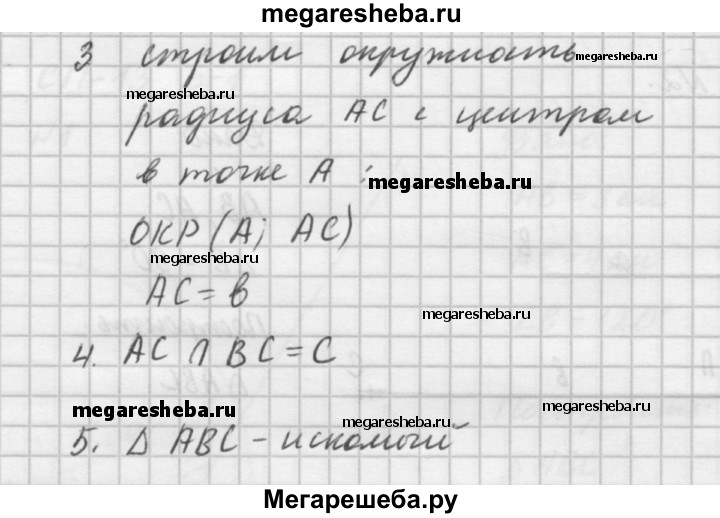 megaresheba.ru
3 строим окружность
megaresheba.ru
megaresheba.ru
радиуса AC с центром
в точке A :
megaresheba.ru
ОКР (A; AC)
megaresheba.ru
AC = в
megaresheba.ru
4. AC ∩ BC = C
megaresheba.ru
megaresheba.ru
megaresheba.ru
5. Δ ABC - искомый
Мегарешеба.ру